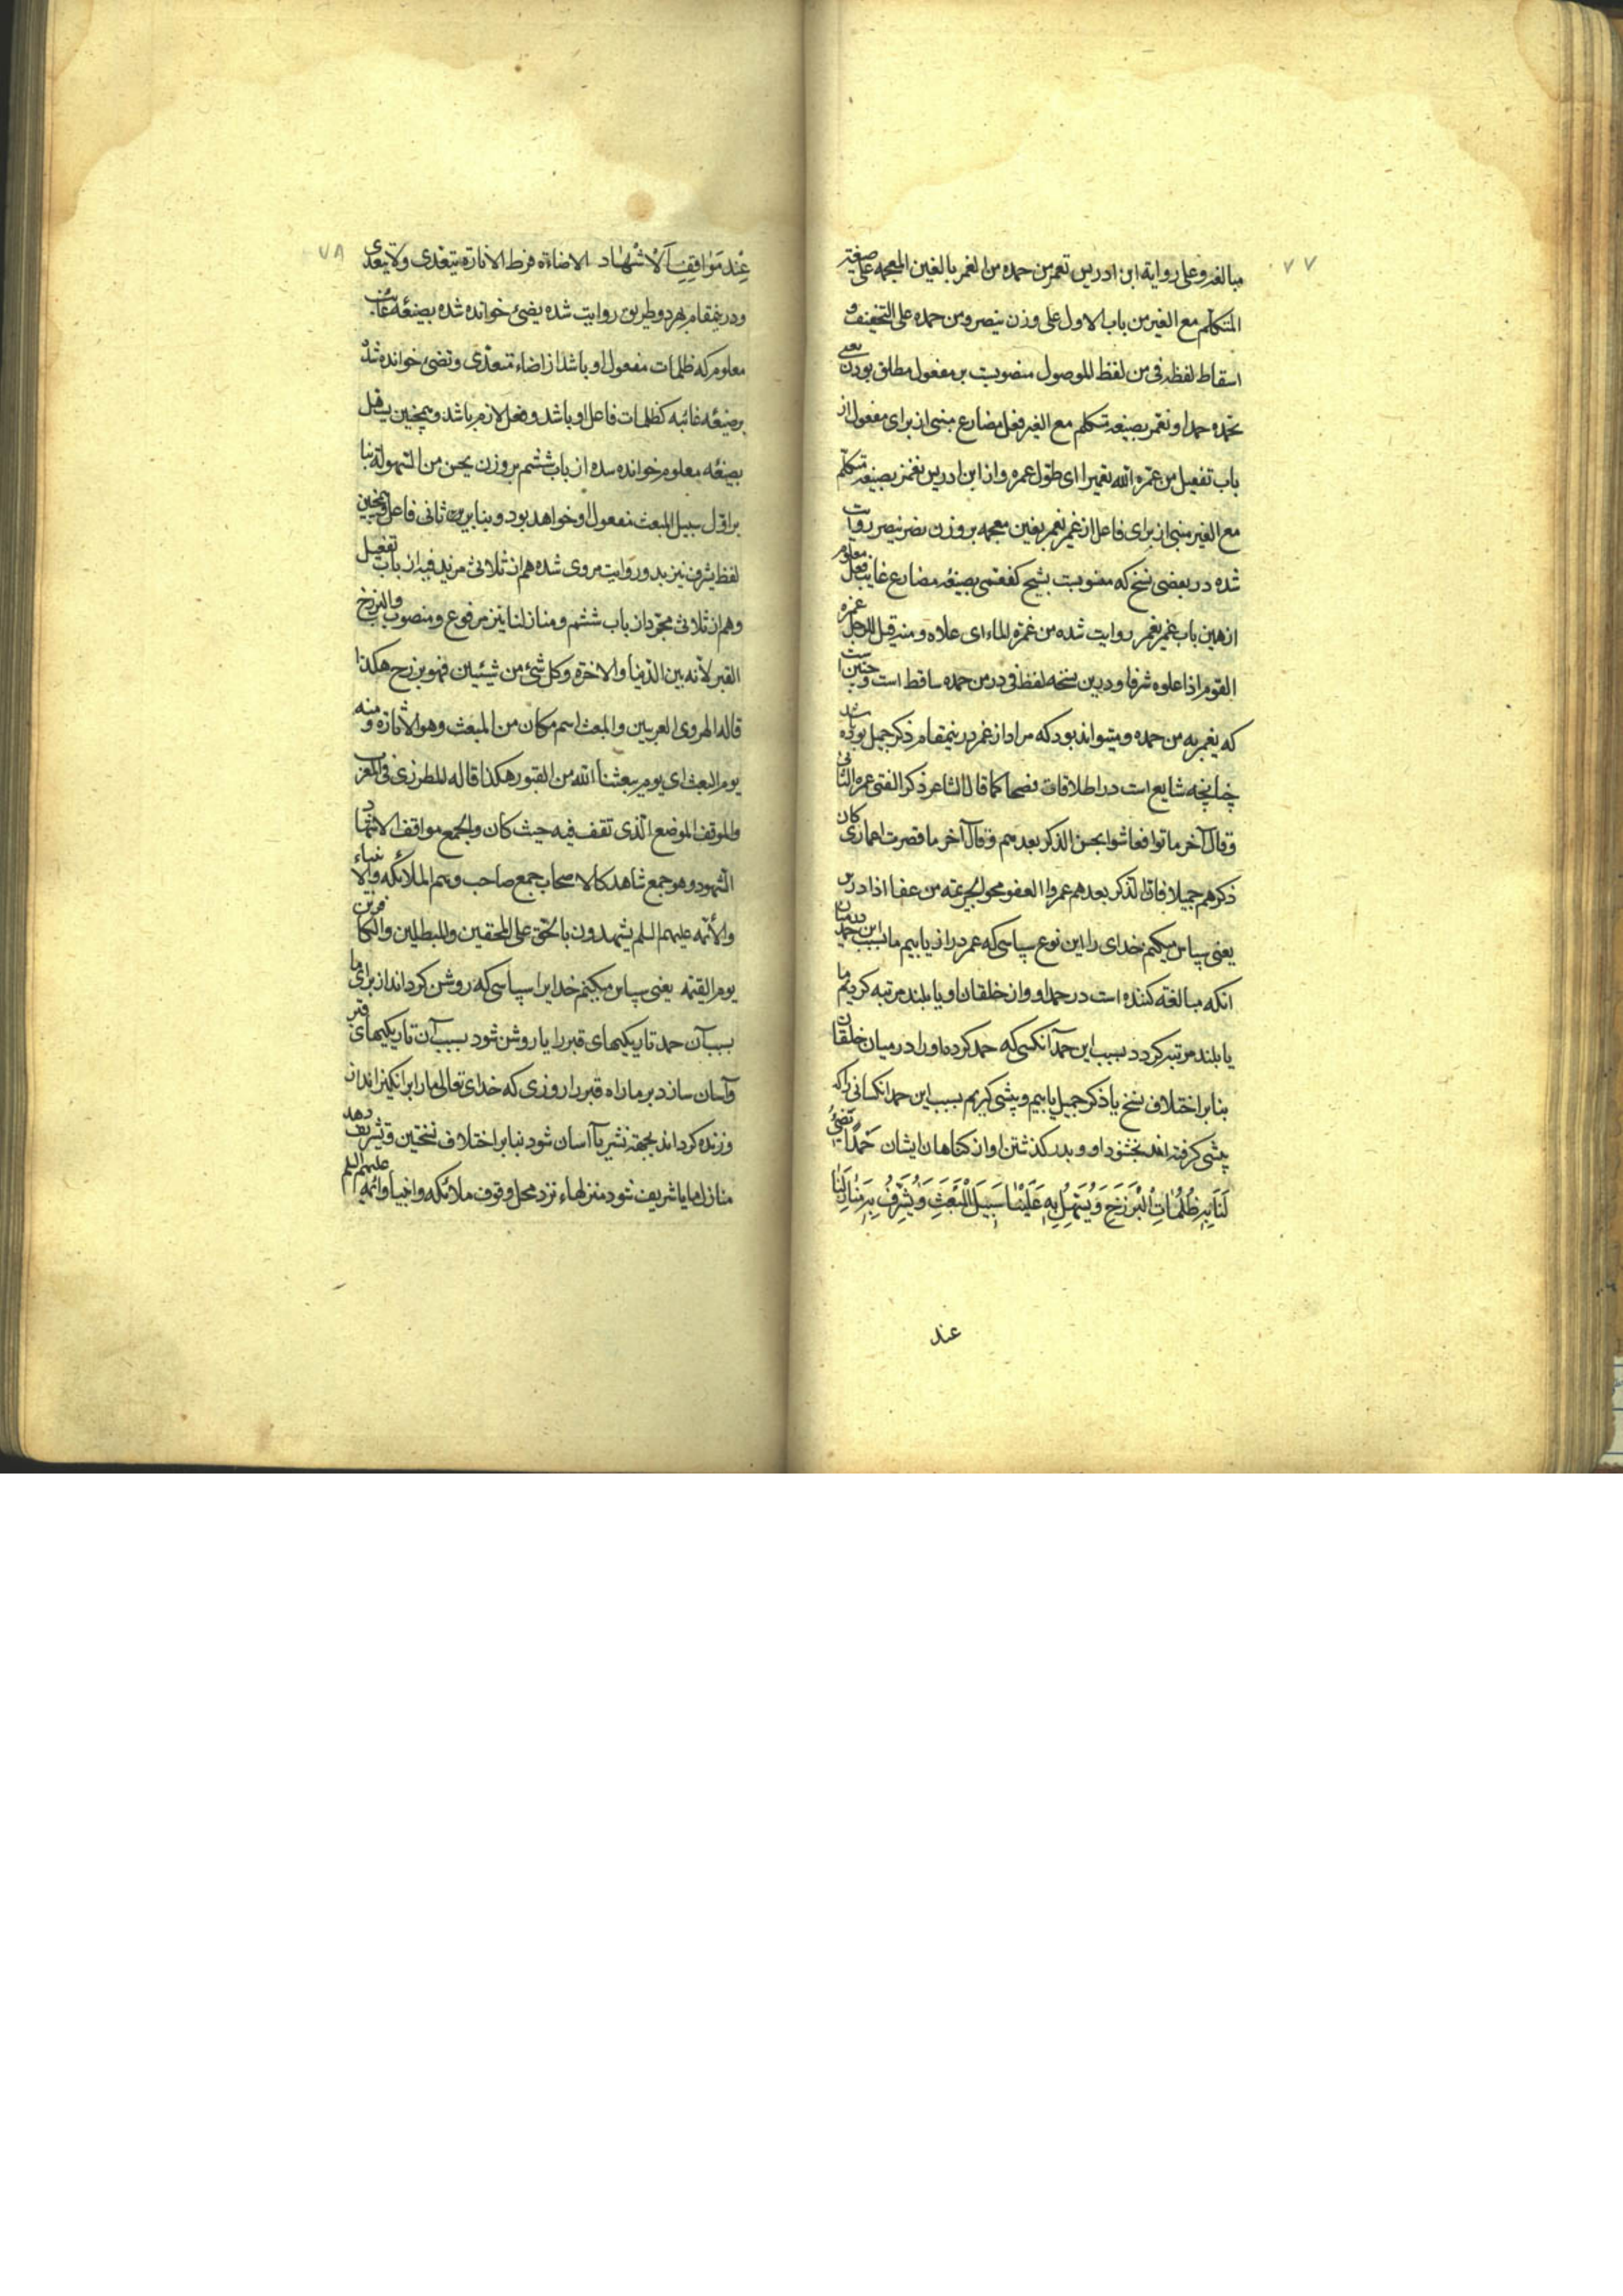 ۷۷
مبالغه و علی روایة ابن ادریس تعمر من حمده من الغمر بالغین المعجمه علی صیغة
المتکلم مع الغیر من باب الاول علی وزن ینصر و من حمده علی التخفیف و
اسقاط لفظه فی من لفظ الموصول منصوبست بر مفعول مطلق بودن یعنی
نحمده حمدا و نعمر بصیغه متکلم مع الغیر فعل مضارع مبنی از برای مفعول از
باب تفعیل من عمره الله تعمیرا ای طول عمره و از ابن ادریس نغمر بصیغه متکلم
مع الغیر مبنی از برای فاعل از غمر یغمر بغین معجمه بر وزن نصر ینصر روایت
شده در بعضی نسخ که منسوبست بشیخ کفعمی بصیغه مضارع غایب فعل معلوم
از همین باب غمر یغمر روایت شده من غمره الماء ای علاه و منه قیل للرجل غمره
القوم اذا علوه شرفا و درین نسخه لفظ فی در من حمده ساقط است و چنین است
که یغمر به من حمده و میتواند بود که مراد از عمر درینمقام ذکر جمیل بوده باشد
چنانچه شایع است در اطلاقات فصحا کما قال الشاعر ذکر الفتی عمره الثانی
و قال آخر ماتوا فعاشوا بحسن الذکر بعدهم و قال آخر ما قصرت اعماری کان
ذکرهم جمیلا فان الذکر بعدهم عمروا العفو محو الجریمه من عفا اذا درس
یعنی سپاس میکنم خدای را این نوع سپاسی که عمر دراز یابیم ما بسبب این حمد در میان
انکه مبالغه کننده است در حمد او از خلقان او یا بلند مرتبه کردیم ما
یا بلند مرتبه کردد بسبب این حمد آنکسی که حمد کرده او را در میان خلقان
بنابر اختلاف نسخ یا ذکر جمیل یابیم و پیشی کیریم بسبب این حمد انکسانی را که
پیشی کرفته اند بخشنود او و بدر کذشتن او از کناهان ایشان حَمْدًا تُضِیُٔ
لَنَا بِهِ ظُلُمَاتِ الْبَرْزَخِ وَیُسَهِّلُ بِهِ عَلَیْنَا سَبِیلَ الْمَبْعَثِ وَیُشَرِّفُ بِهِ مَنَازِلَنَا
عند
۷۸
عِنْدَ مَوَاقِفِ الْاَشْهَادِ الاضاءة فرط الانارة یتعدی و لا یتعدی
و درینمقام بهر دو طریق روایت شده یضئ خوانده شده بصیغه غائب
معلوم که ظلمات مفعول او باشد از اضاء متعدی و تضئ خوانده شد
بر صیغه غائبه که ظلمات فاعل او باشد و فعل لازم باشد و همچنین یسهل
بصیغه معلوم خوانده شده از باب ششم بر وزن یحسن من السهولة بنا
بر اول سبیل المبعث مفعول او خواهد بود و بنابرین ثانی فاعل و همچنین
لفظ یشرف نیز بدو روایت مروی شده هم از ثلاثی مزید فیه از باب تفعیل
و هم از ثلاثی مجرد از باب ششم و منازلنا نیز مرفوع و منصوب و البرزخ
القبر لانه بین الدنیا و الاخرة و کل شئ من شیئین فهو برزخ هکذا
قاله الهروی العربیین و المبعث اسم مکان من المبعث و هو الاثارة و منه
یوم البعث ای یوم یبعثنا الله من القبور هکذا قاله المطرزی فی المغرب
و الموقف الموضع الذی تقف فیه حیث کان و الجمع مواقف الاشهاد
الشهود و هو جمع شاهد کالاصحاب جمع صاحب و هم الملائکه و الانبیاء
و الائمه علیهم السلم یشهدون بالحق علی المحقین و المبطلین و الکافرین
یوم القیمه یعنی سپاس میکنم خدایرا سپاسی که روشن کرداند از برای ما
بسبب آن حمد تاریکیهای قبر را یا روشن شود بسبب آن تاریکیهای قبر
و آسان سازد بر ما راه قبر را روزی که خدای تعالی ما را برانکیزاند از
و زنده کرداند بجهة نشر یا آسان شود بنابر اختلاف نسختین و تشریف دهد
منازل ما یا شریف شود منزلهاء نزد محل وقوف ملائکه و انبیا و ائمه علیهم السلم